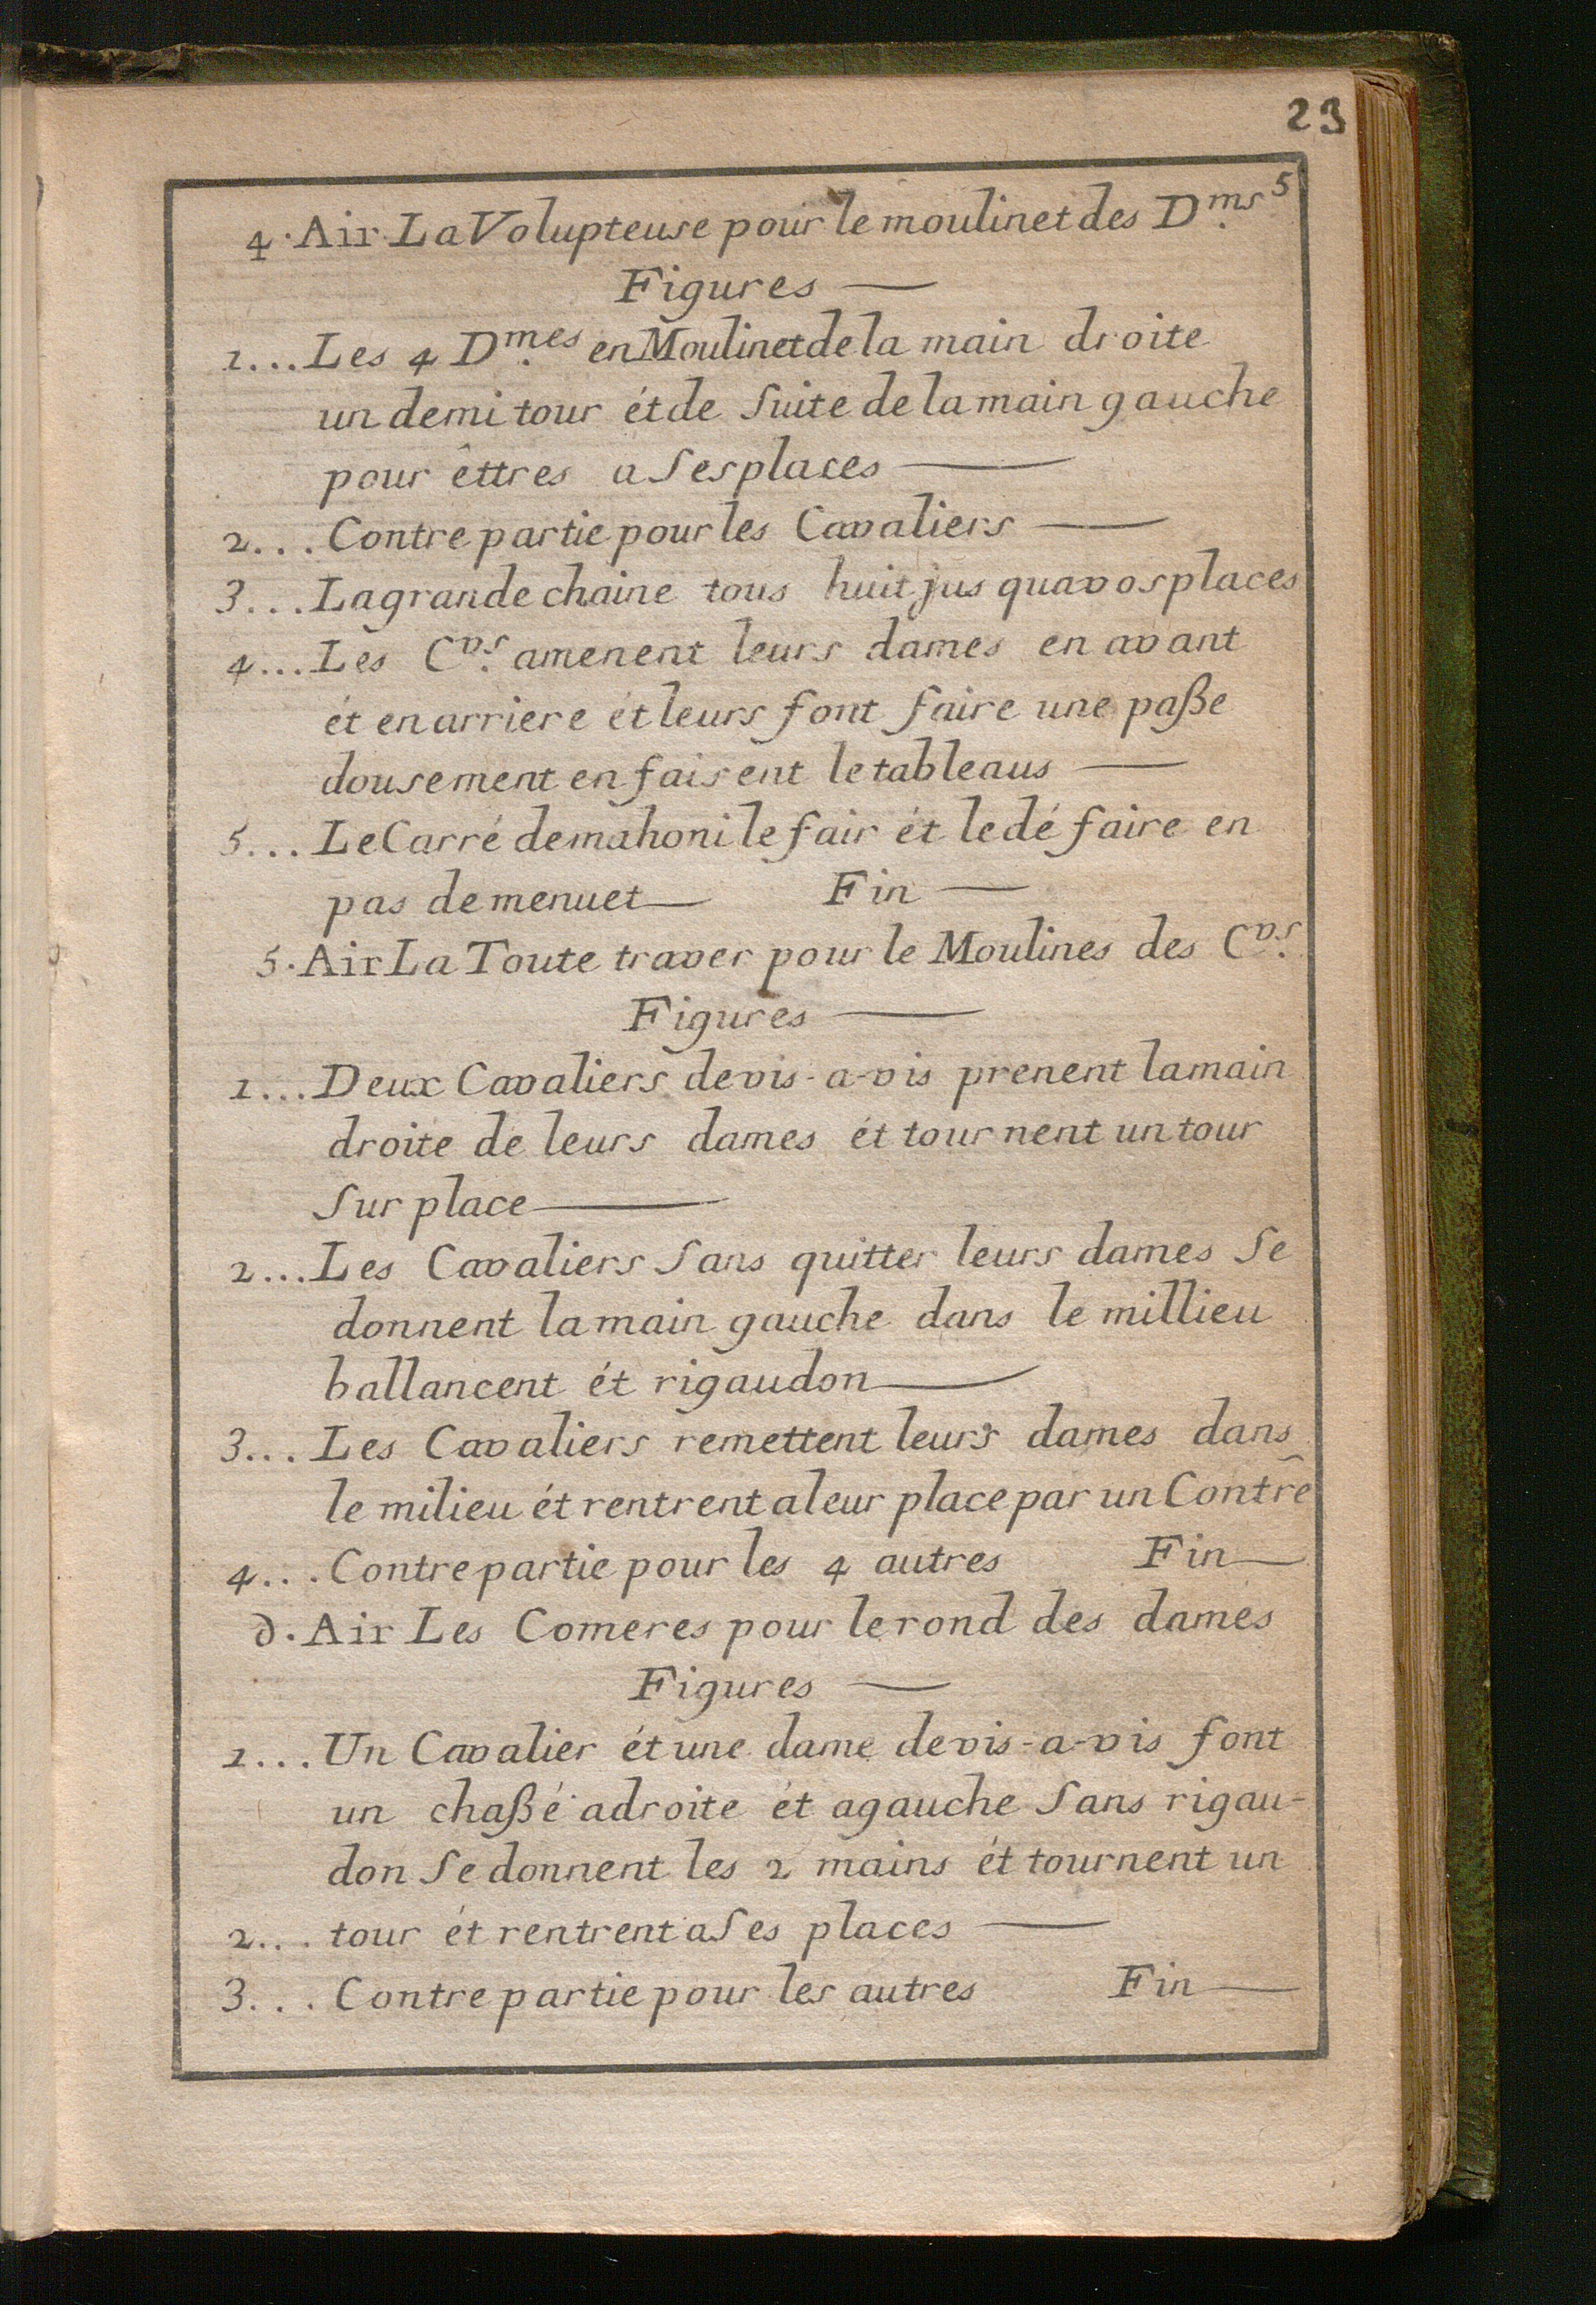 23
5
4. Air La Volupteuse pour le moulinet des D.ms
Figures —
1... Les 4 D.mes en Moulinet de la main droite
un demi tour ét de Suite de la main gauche
pour êttres a Ses places —
2... Contre partie pour les Cavaliers —
3... La grande chaine tous huit jus qua vos places
4... Les C.vs amenent leurs dames en avant
ét en arriere ét leurs font faire une paße
dousement en faisent le tableaus —
5... Le Carré de mahoni le fair ét le dé faire en
pas de menuet — Fin —
5. Air La Toute traver pour le Moulines des C.vs
Figures —
1... Deux Cavaliers de vis-a-vis prenent la main
droite de leurs dames ét tournent un tour
Sur place —
2... Les Cavaliers Sans quitter leurs dames Se
donnent la main gauche dans le millieu
ballancent ét rigaudon —
3... Les Cavaliers remettent leurs dames dans
le milieu ét rentrent a leur place par un Contr̃e
4... Contre partie pour les 4 autres Fin —
∂. Air Les Comeres pour le rond des dames
Figures —
1... Un Cavalier ét une dame de vis-a-vis font
un chaßé a droite ét a gauche Sans rigau-
don Se donnent les 2 mains ét tournent un
2... tour ét rentrent a Ses places —
3... Contre partie pour les autres Fin —